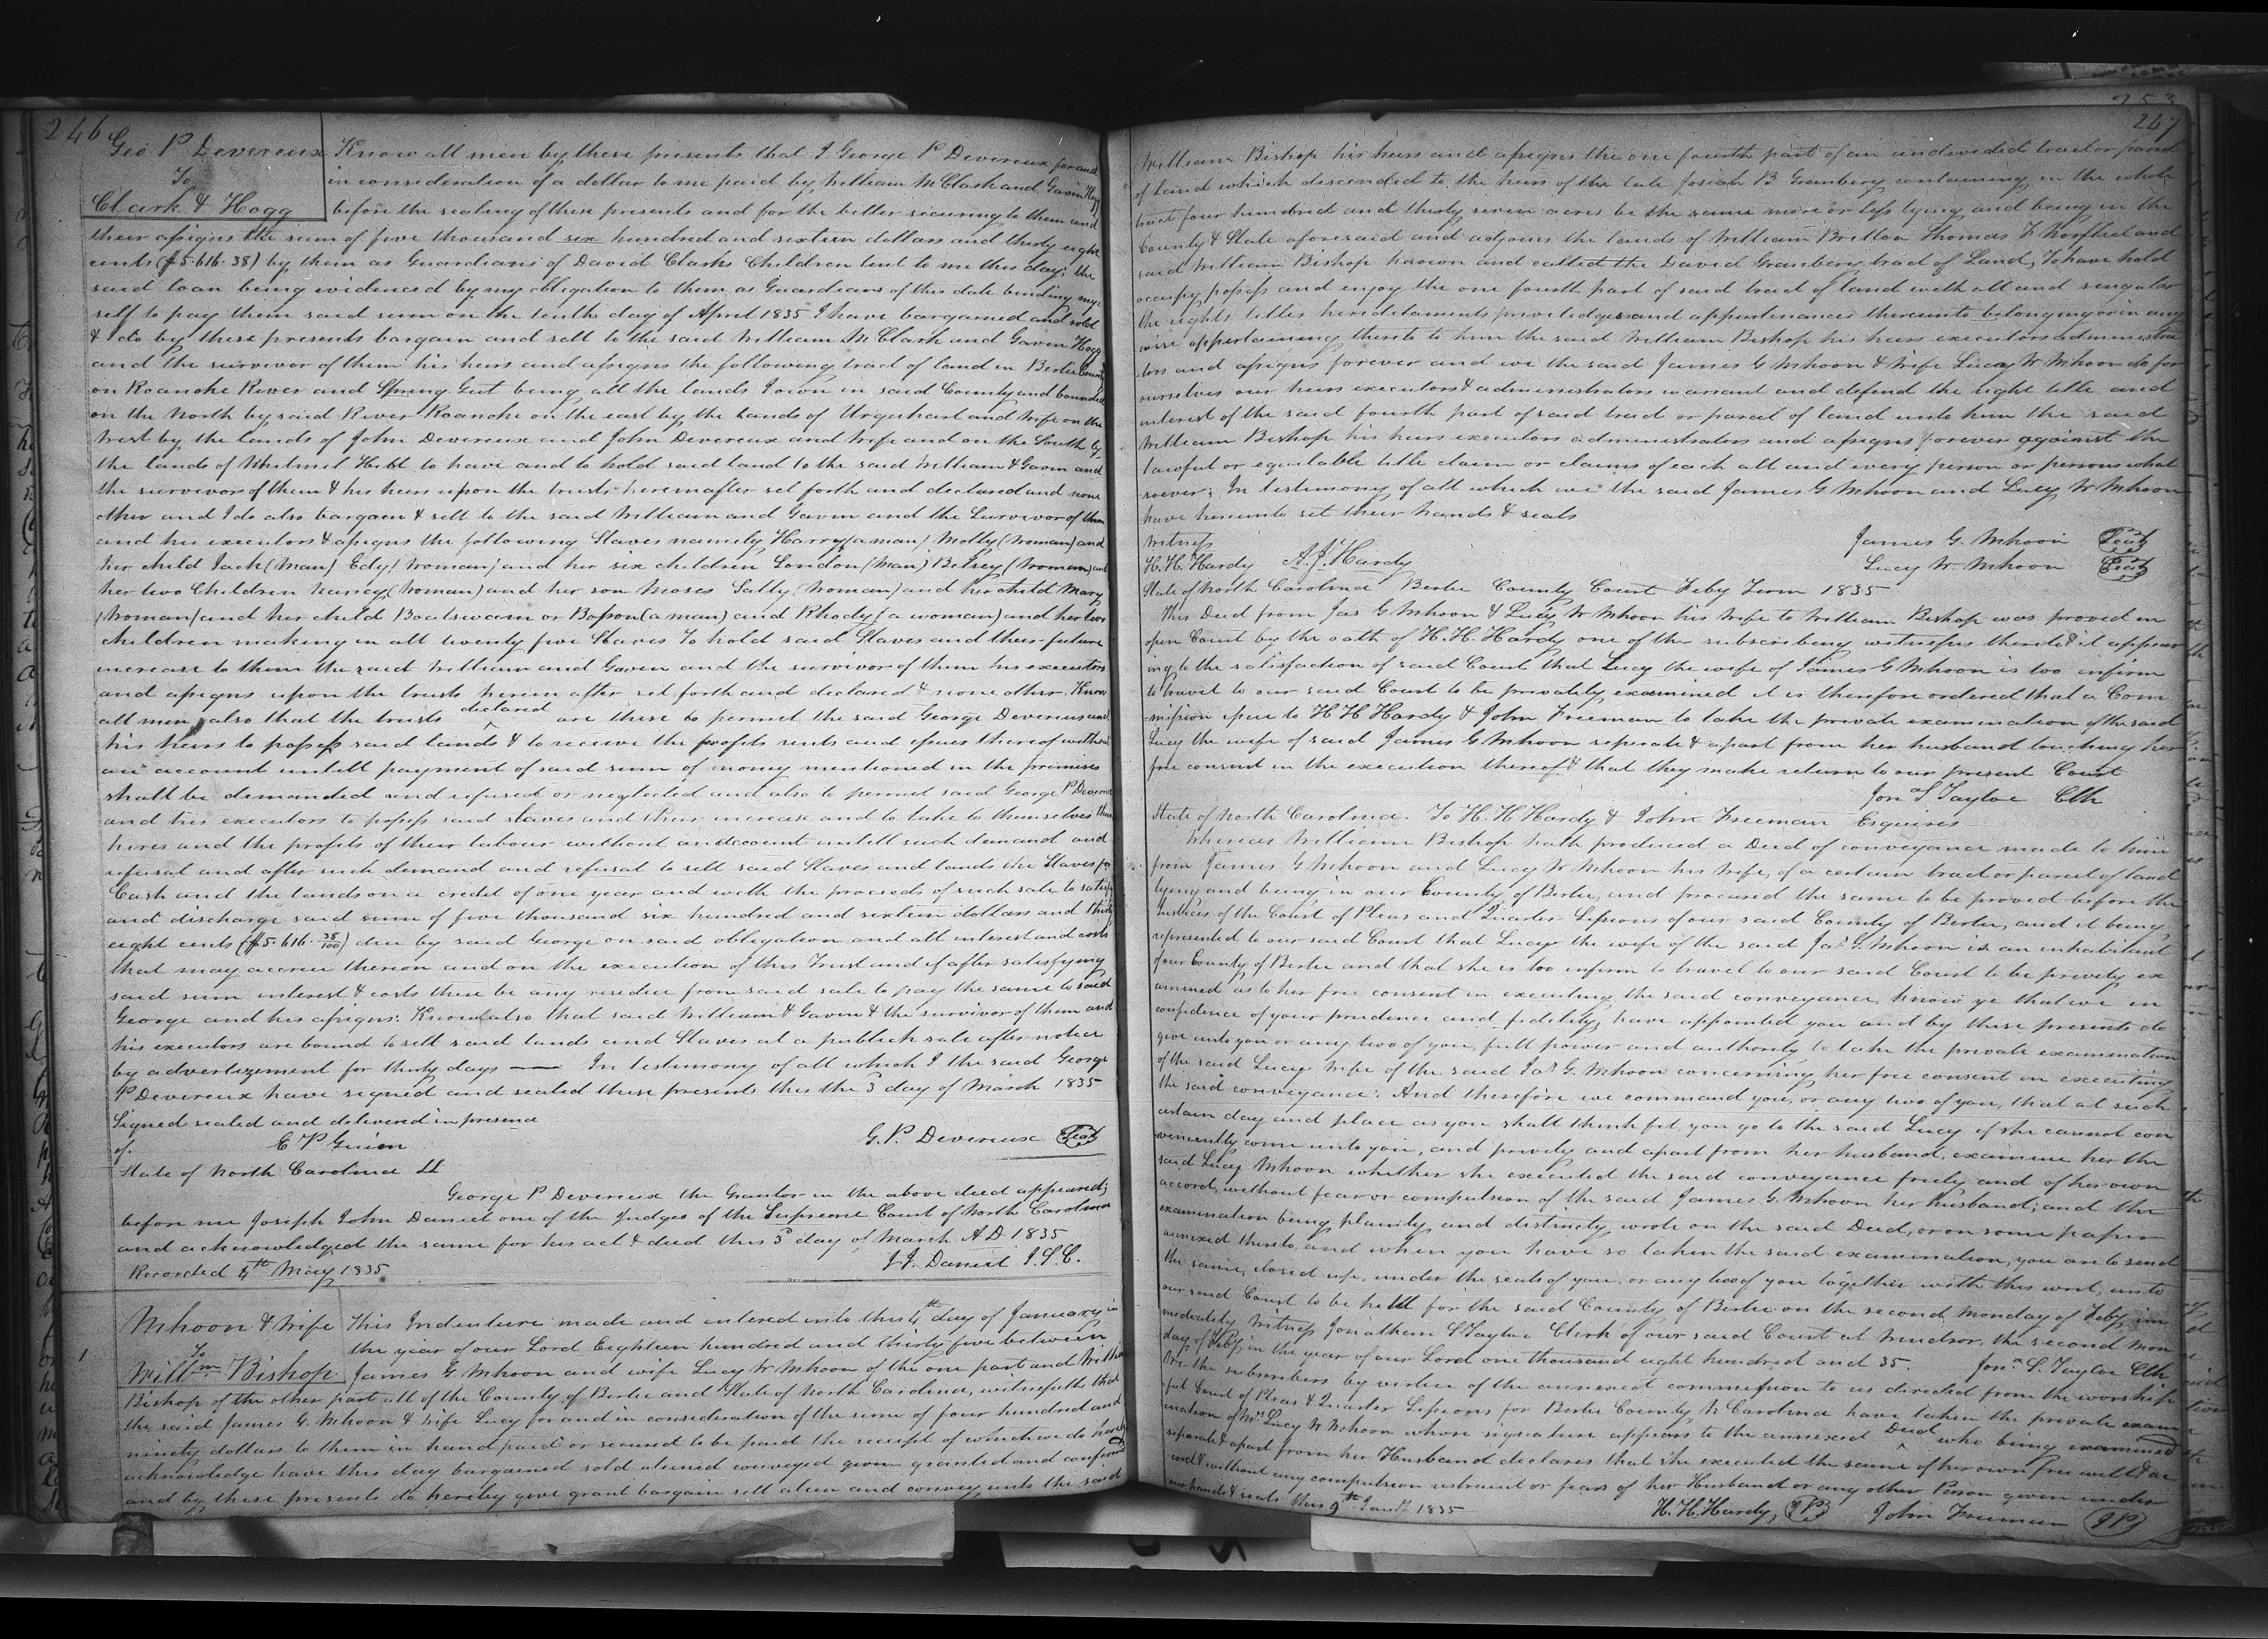 246
Geo. P Devereux
To
Clark & Hogg
Know all men by these presents that I George P Devereux for and
in consideration of a dollar to me paid by William M Clark and Gavin Hogg
before the sealing of these presents and for the better securing to them and
their assigns the sum of five thousand six hundred and sixteen dollars and thirty eight
cents ($5.616.38) by them as Guardians of David Clarks Children lent to me this day; the
said loan being evidenced by my obligation to them as Guardians of this date binding my-
self to pay them said sum on the tenth day of April 1835 I have bargained and sold
& I do by these presents bargain and sell to the said William M Clark and Gavin Hogg
and the survivor of them his heirs and assigns the following tract of land in Bertie County
on Roanoke River and Spring Gut being all the lands I own in said County and bounded
on the North by said River Roanoke on the east by the lands of Urquhart and wife on the
West by the lands of John Devereux and John Devereux and wife and on the South by
the lands of Whitmel Hill to have and to hold said land to the said William & Gavin and
the survivor of them & his heirs upon the trusts hereinafter set forth and declared and none
other and I do also bargain & sell to the said William and Gavin and the Survivor of them
and his executors & assigns the following Slaves namely Harry (a man) Molly (woman) and
her child Jack (man) Edy (woman) and her six children London (man) Betsey (woman) and
her two Children Nancy (woman) and her son Moses Sally (woman) and her child Mary
(woman) and her child Boatswain or Bosson (a man) and Rhody (a woman) and her two
children making in all twenty five Slaves To hold said Slaves and their future
increase to them the said William and Gavin and the survivor of them his executors
and assigns upon the trusts herein after set forth and declared & none other. Know
all men also that the trusts declared are these to permit the said George Devereux and
his heirs to possess said lands & to receive the profits rents and issues thereof without
an account untill payment of said sum of money mentioned in the premises
shall be demanded and refused or neglected and also to permit said George P Devereux
and his executors to possess said slaves and their increase and to take to themselves their
hires and the profits of their labour without an account untill such demand and
refusal and after such demand and refusal to sell said Slaves and lands the Slaves for
Cash and the lands on a credit of one year and with the proceeds of such sale to satisfy
and discharge said sum of five thousand six hundred and sixteen dollars and thirty
eight cents ($5.616.38/100) due by said George on said obligation and all interest and costs
that may accrue thereon and on the execution of this Trust and if after satisfying
said sum interest & costs there be any residue from said sale to pay the same to said
George and his assigns. Know also that said William & Gavin & the survivor of them and
his executors are bound to sell said lands and Slaves at a publick sale after notice
by advertizement for thirty days — In testimony of all which I the said George
P Devereux have signed and sealed these presents this the 3d day of March 1835
Signed sealed and delivered in presence
of. E P Guion G. P. Devereux Seal
State of North Carolina
George P Devereux the Grantor in the above deed appeared;
before me Joseph John Daniel one of the Judges of the Supreme Court of North Carolina
and acknowledged the same for his act & deed this 3d day of March A D 1835
J. J. Daniel J. S. C.
Recorded 4th May 1835
Mhoon & Wife
To
Willm Bishop
This Indenture made and entered into this 4th day of January in
the year of our Lord Eighteen hundred and thirty five between
James G Mhoon and wife Lucy W Mhoon of the one part and William
Bishop of the other part all of the County of Bertie and State of North Carolina, witnesseth that
the said James G. Mhoon & wife Lucy for and in consideration of the sum of four hundred and
ninety dollars to them in hand paid or secured to be paid the receipt of which we do hereby
acknowledge have this day bargained sold aliened conveyed given granted and confirmed
and by these presents do hereby give grant bargain sell alien and convey unto the said
247
William Bishop his heirs and assigns the one fourth part of an undivided tract or parcel
of Land which descended to the heirs of the late Josiah B Granbery containing in the whole
tract four hundred and thirty seven acres be the same more or less lying and being in the
County & State aforesaid and adjoins the lands of William Britton Thomas F Norfleet and
said William Bishop known and called the David Granbery tract of Land, To have hold
occupy possess and enjoy the one fourth part of said tract of land with all and singular
the rights titles hereditaments priviledges and appurtenances thereunto belonging or in any
wise appertaining thereto to him the said William Bishop his heirs executors administra
tors and assigns forever and we the said James G Mhoon & wife Lucy W Mhoon do for
ourselves our heirs executors & administrators warrant and defend the right title and
interest of the said fourth part of said tract or parcel of land unto him the said
William Bishop his heirs executors administrators and assigns forever against the
lawful or equitable title claim or claims of each all and every person or persons what
soever; In testimony of all which we the said James G Mhoon and Lucy W Mhoon
have hereunto set their hands & seals
Witness James G. Mhoon Seal
H. H. Hardy A. J. Hardy Lucy W Mhoon Seal
State of North Carolina Bertie County Court Feby Term 1835
This Deed from Jas G Mhoon & Lucy W Mhoon his wife to William Bishop was proved in
open Court by the oath of H. H Hardy one of the subscribing witnesses thereto & it appear
ing to the satisfaction of said Court that Lucy the wife of James G Mhoon is too infirm
to travel to our said Court to be privately examined it is therefore ordered that a Com
mission issue to H H Hardy & John Freeman to take the private examination of the said
Lucy the wife of said James G Mhoon seperate & apart from her husband touching her
free consent in the execution thereof & that they make return to our present Court
Jona S Tayloe Clk
State of North Carolina. To H. H Hardy & John Freeman Esquires
Whereas William Bishop hath produced a Deed of conveyance made to him
from James G Mhoon and Lucy W Mhoon his wife, of a certain tract or parcel of land
lying and being in our County of Bertie, and procured the same to be proved before the
Justices of the Court of Pleas and Quarter Sessions of our said County of Bertie, and it being
represented to our said Court that Lucy the wife of the said Jas G. Mhoon is an inhabitant
of our County of Bertie and that she is too infirm to travel to our said Court to be privily ex
amined as to her free consent in executing the said conveyance, know ye that we in
confidence of your prudence and fidelity, have appointed you and by these presents do
give unto you or any two of you, full power and authority to take the private examination
of the said Lucy wife of the said Jas G. Mhoon concerning her free consent in executing
the said conveyance: And therefore we command you, or any two of you, that at such
certain day and place as you shall think fit, you go to the said Lucy if she cannot con
veniently come unto you, and privily and apart from her husband, examine her the
said Lucy Mhoon whether she executed the said conveyance freely and of her own
accord, without fear or compulsion of the said James G. Mhoon her husband; and the
examination being plainly and distinctly wrote on the said Deed, or on some paper
annexed thereto and when you have so taken the said examination, you are to send
the same, closed up, under the seals of you, or any two of you together with this writ, unto
our said Court to be held for the said County of Bertie on the second Monday of Feby, im
mediately. Witness Jonathan S Tayloe Clerk of our said Court at Windsor, the second Mon
day of Feby in the year of our Lord one thousand eight hundred and 35. Jona S. Tayloe Clk
We the subscribers by virtue of the annexed commission to us directed from the worship
ful Court of Pleas & Quarter Sessions for Bertie County N Carolina have taken the private exami
nation of Mrs Lucy W Mhoon whose signature appears to the annexed Deed who being examined
seperate & apart from her Husband declares that she executed the same of her own free will & ac
cord & without any compulsion restraint or fear of her Husband or any other Person given under
our hands & seals this 9th 1835 H. H. Hardy, JP John Freeman JP